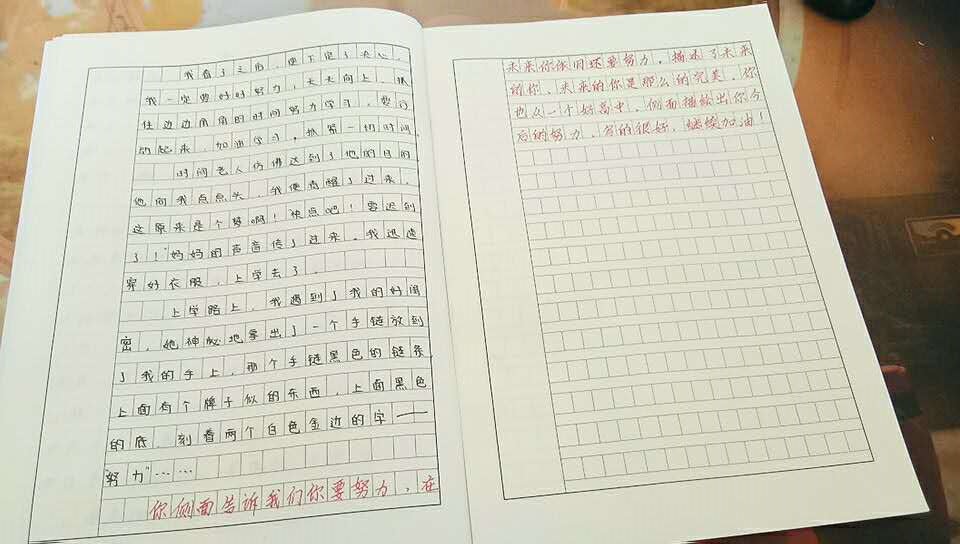 我看了之后，便下定了决心，
我一定要好好努力，天天向上，抓
住边边角角的时间努力学习，要行
动起来，加油学习，抓紧一切时间
时间老人仿佛达到了他的目的
他向我点点头，我便清醒了过来，
这原来是个梦啊！快点吧！要迟到
了！"妈妈的声音传了过来，我迅速
穿好衣服，上学去了.
上学路上，我遇到了我的好闺
密，她神秘地拿出了一个手链放到
了我的手上，那个手链黑色的链条
上面有个牌子似的东西，上面黑色
的底，刻着两个白色金边的字——
努力"……
你侧面告诉我们你要努力，在
未来你依旧还要努力，描述了未来
的你，未来的你是那么的完美，你
也从一个好高中，侧面描绘出你今
后的努力，写的很好，继续加油！